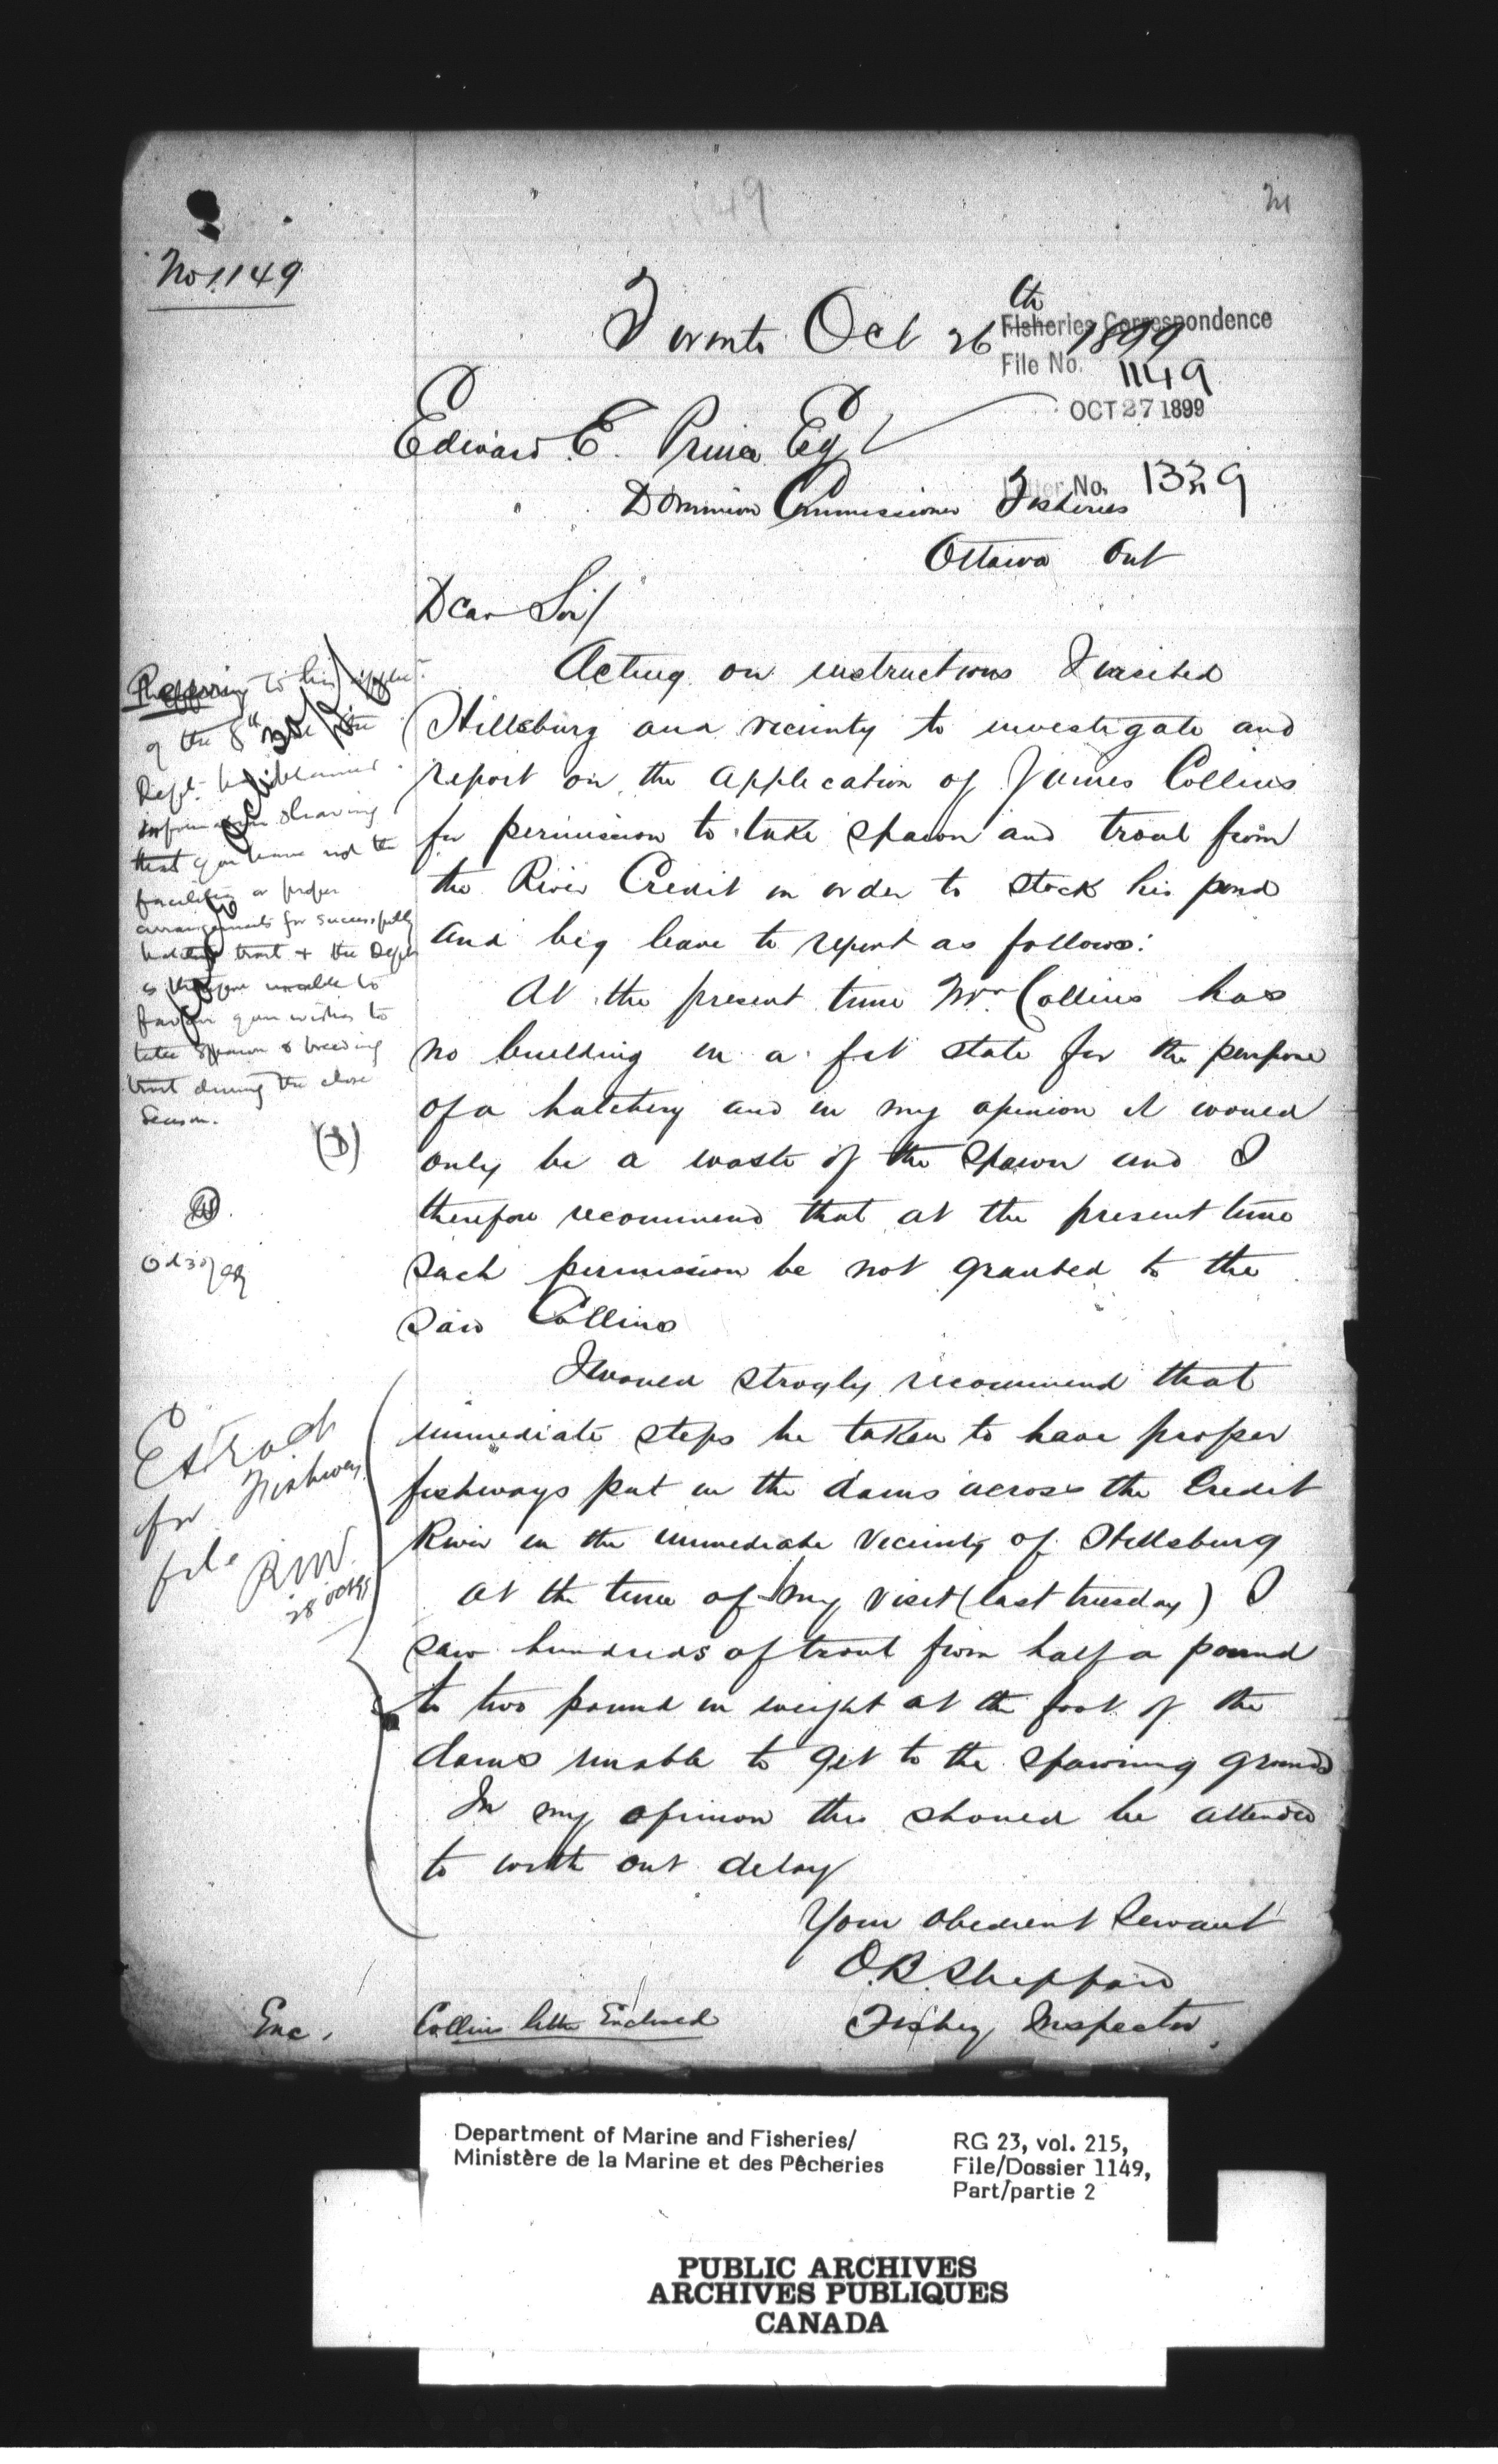 No 1149
Toronto Oct 26th 1899
Fisheries Correspondence
File No. 1149
OCT 27 1899
Edward E. Prince Esq
No. 1339
Dominion Commissioner Fisheries
Ottawa Ont
Dear Sir/
Acting on instructions I visited
Hillsburg and vicinity to investigate and
report on the application of James Collins
for permission to take spawn and trout from
the River Credit in order to stock his pond
and beg leave to report as follows:
At the present time Mr. Collins has
no building in a fit state for the purpose
of a hatchery and in my opinion it would
only be a waste of the spawn and I
therefore recommend that at the present time
such permission be not granted to the
said Collins
I would strogly recommend that
immediate steps be taken to have proper
fishways put in the dams across the Credit
River in the immediate vicinity of Hillsburg
at the time of my visit (last tuesday) I
saw hundreds of trout from half a pound
to two pound in weight at the foot of the
dams unable to get to the spawning grounds
In my opinion this should be attended
to with out delay
Your obedient Servant
O.B. Sheppard
Fishery Inspector
Enc.
Collins letter Enclosed
Referring to his
of the 8th
Dept. has obtained
information showing
that you have not the
facilities or proper
arrangements for successfully
hatching trout + the Dept
is therefore unable to
favour your wishes to
take spawn & breeding
trout during the close
Season.
Oct 30/99
Extract
for Fishway
file
RNV.
28 Oct 99
Department of Marine and Fisheries/
Ministère de la Marine et des Pêcheries
RG 23, vol. 215,
File/Dossier 1149,
Part/partie 2
PUBLIC ARCHIVES
ARCHIVES PUBLIQUES
CANADA